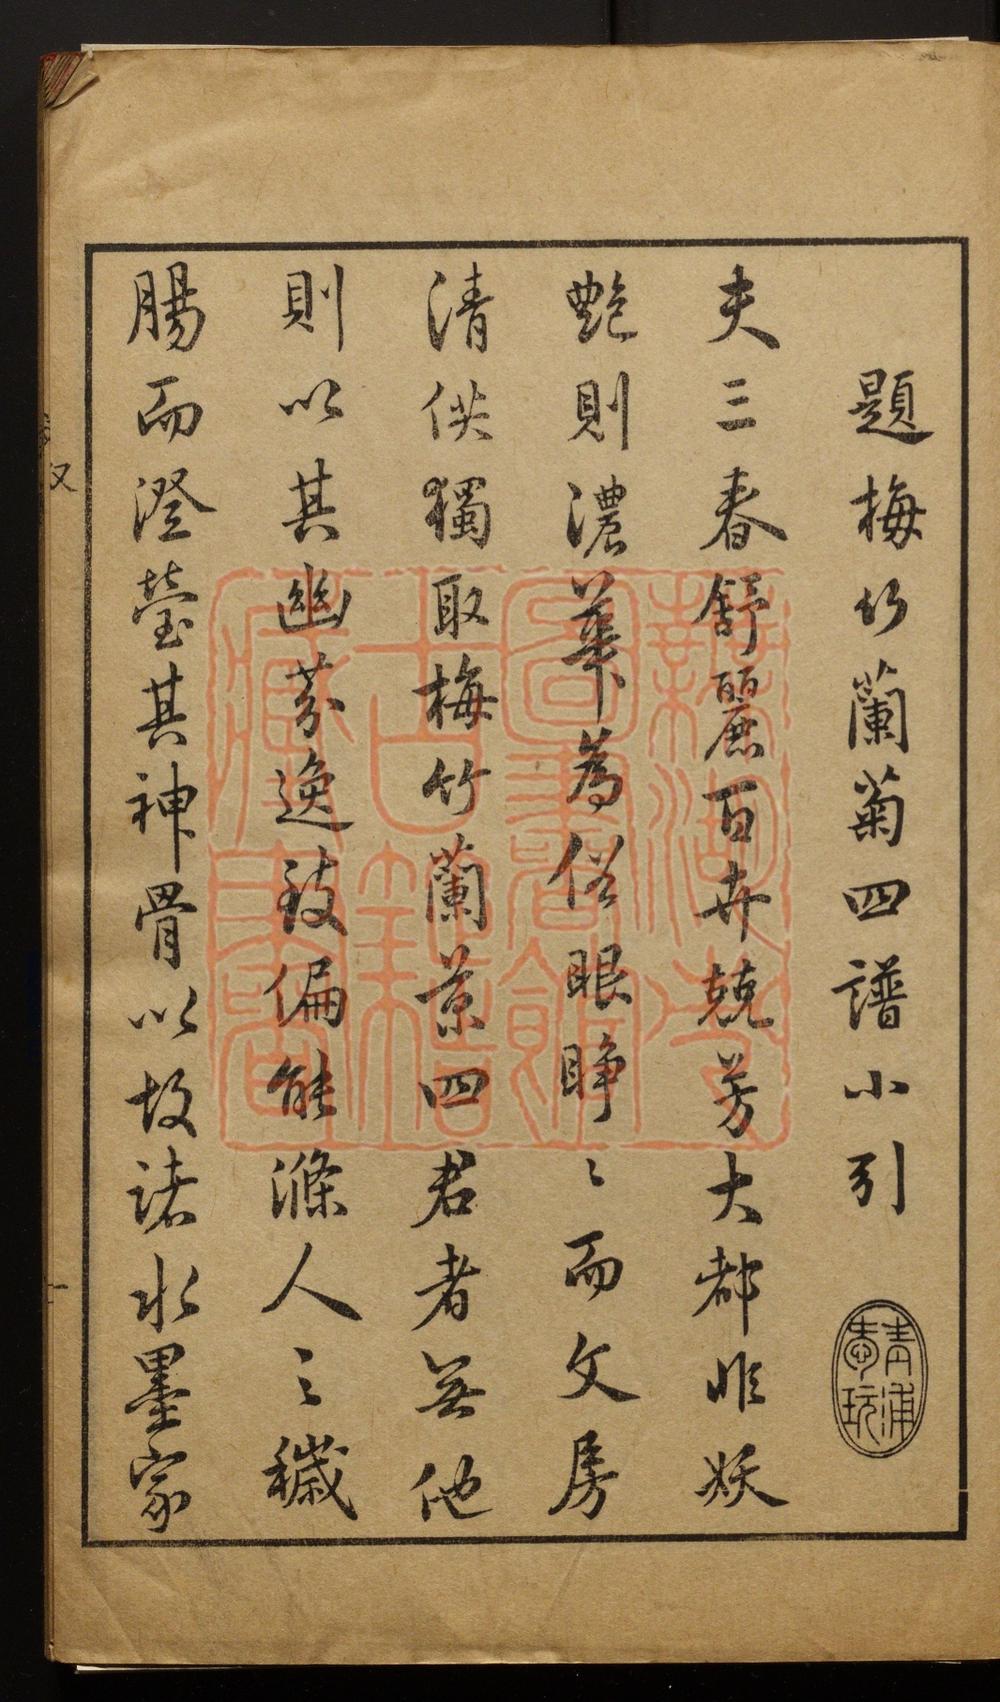 題梅竹蘭菊四譜小引
夫三春舒麗百卉競芳大都非妖
艷則濃華為俗眼睜〻而文房
清供獨取梅竹蘭菊四君者無他
則以其幽芬逸致偏能滌人〻穢
腸而澄瑩其神骨以故諸水墨家
青浦